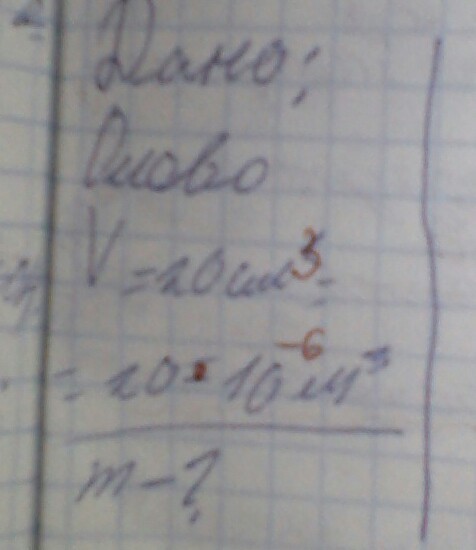 Дано:
Олово
V = 20 см³ =
= 20 · 10⁻⁶ м³
m - ?